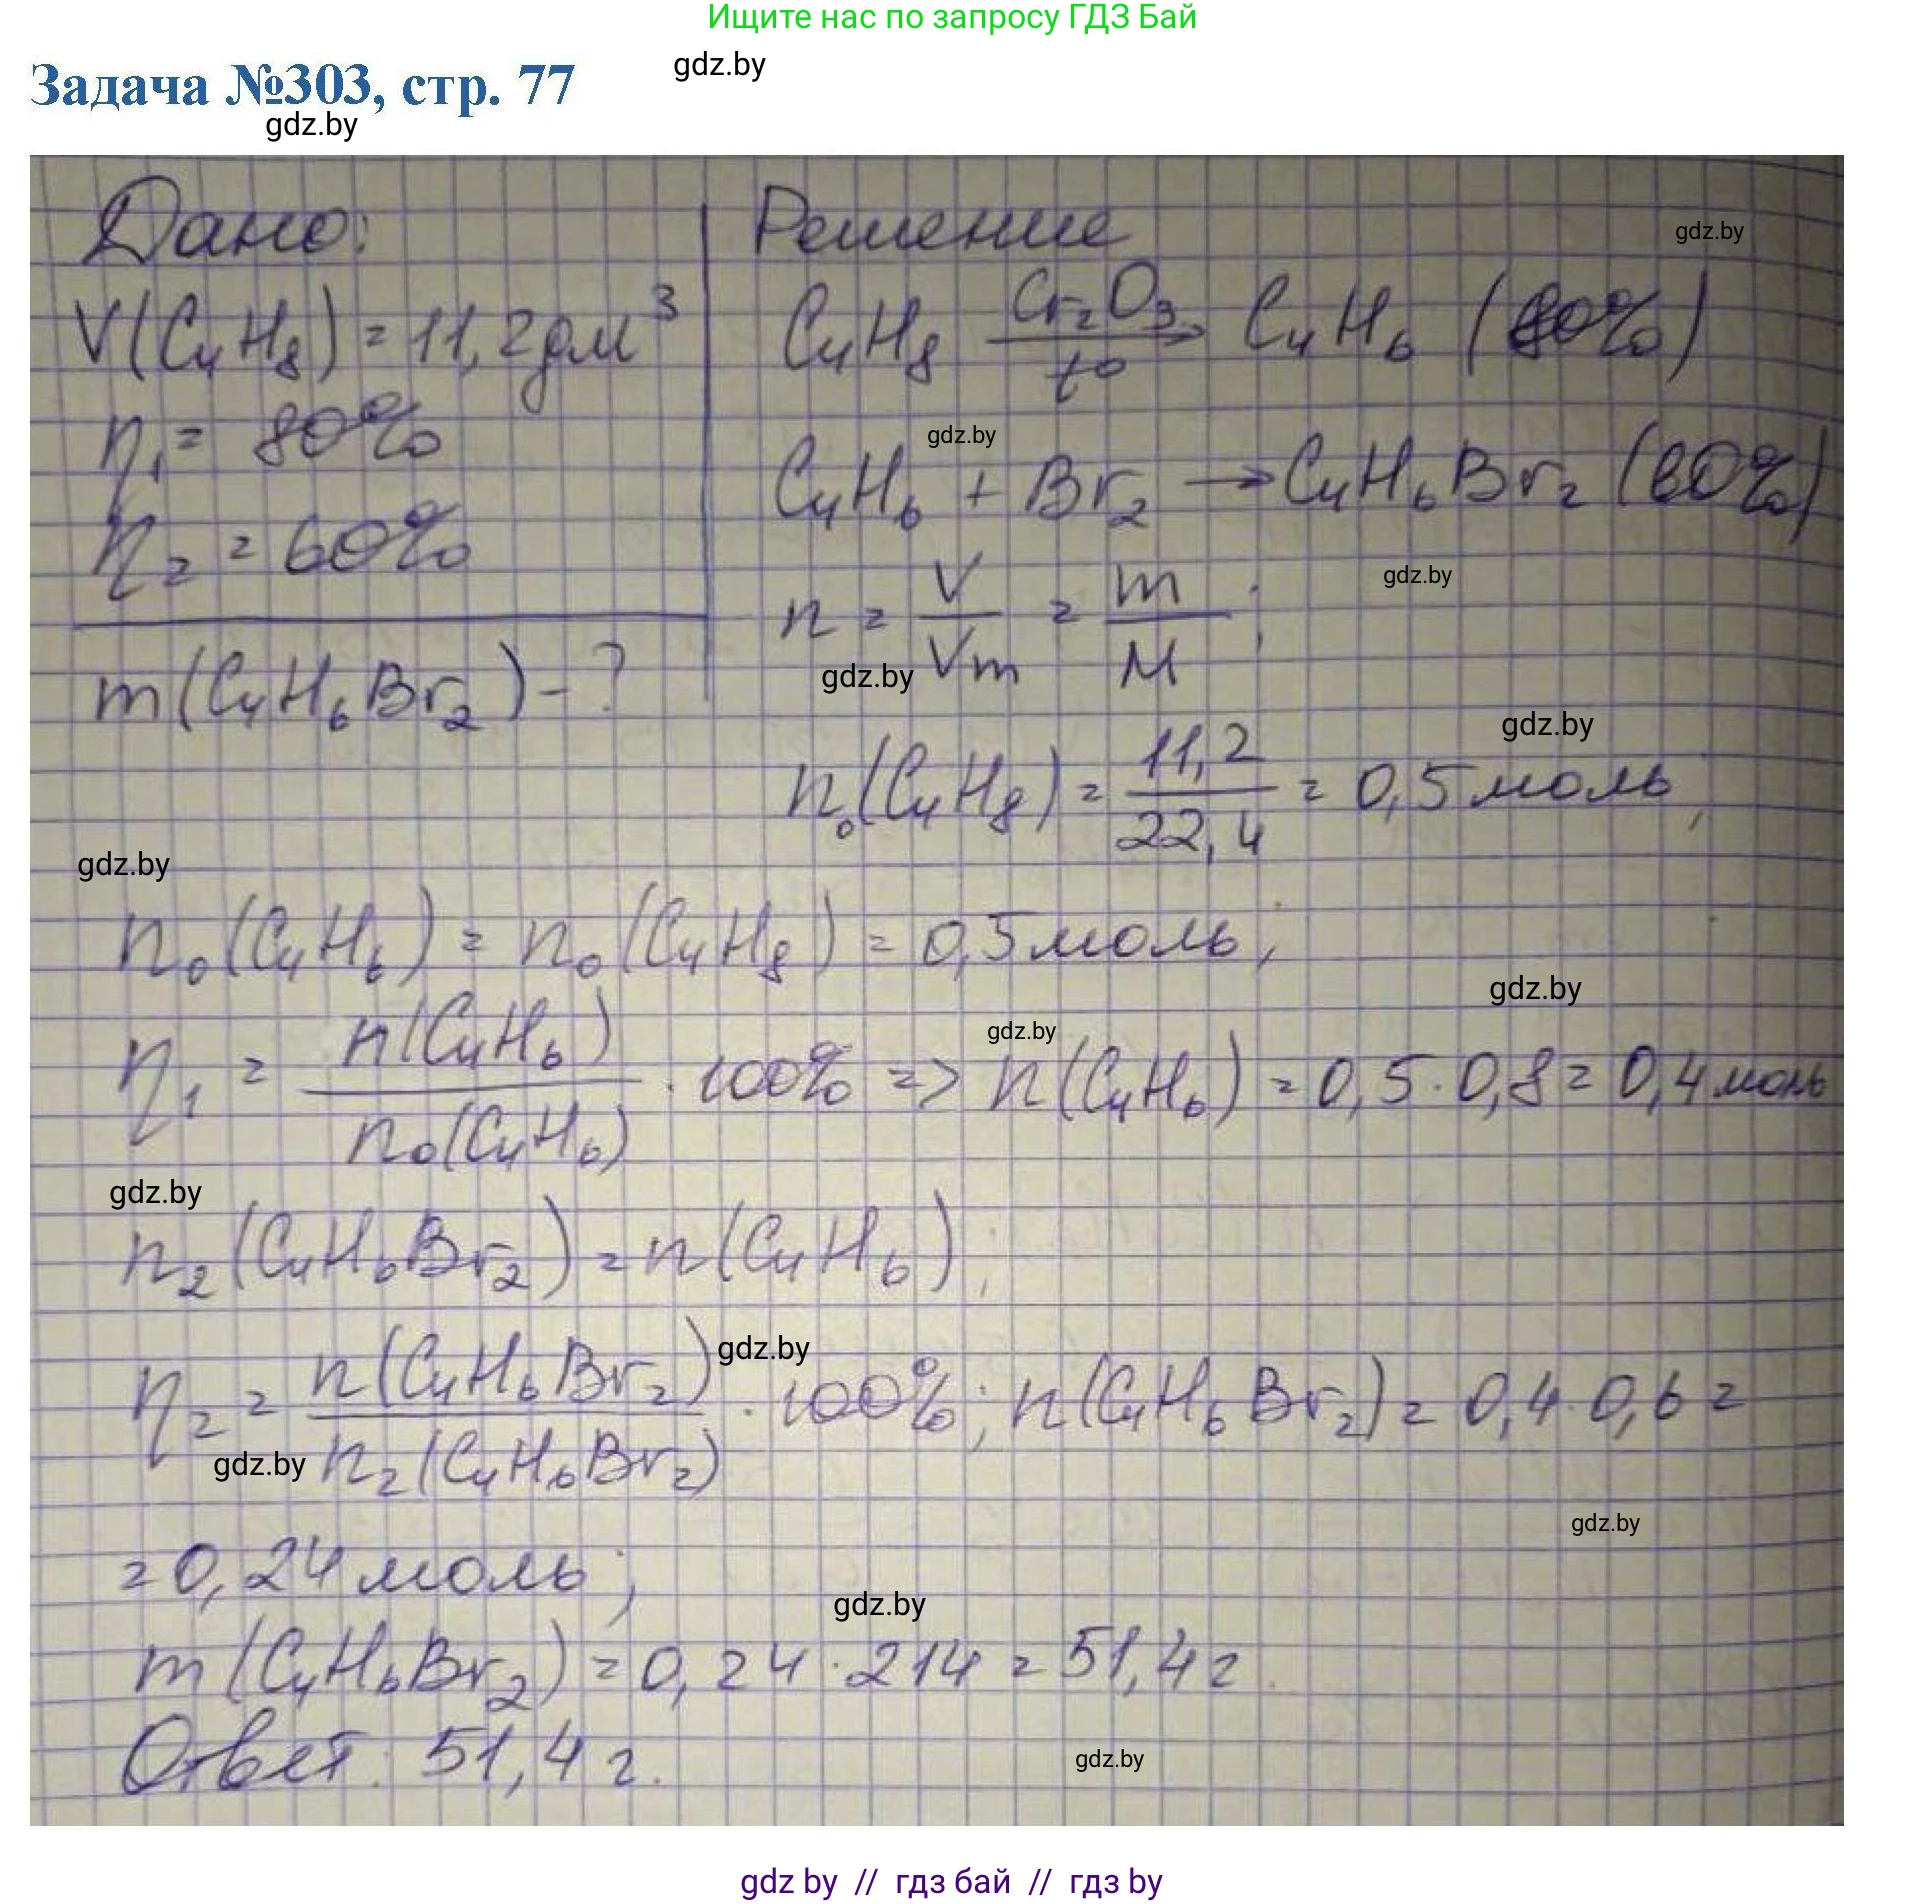 Ищите нас по запросу ГДЗ Бай
gdz.by
Задача №303, стр. 77
gdz.by
Дано:
V(C₄H₈) = 11,2 дм³
η₁ = 80%
η₂ = 60%
m(C₄H₆Br₂) - ?
Решение
gdz.by
C₄H₈ Cr₂O₃ → t° C₄H₆ (80%)
gdz.by
C₄H₆ + Br₂ → C₄H₆Br₂ (60%)
gdz.by
n = V/Vm = m/M;
gdz.by
gdz.by
n₀(C₄H₈) = 11,2/22,4 = 0,5 моль;
gdz.by
n₀(C₄H₆) = n₀(C₄H₈) = 0,5 моль;
gdz.by
gdz.by
η₁ = n(C₄H₆)/n₀(C₄H₆) · 100% => n(C₄H₆) = 0,5 · 0,8 = 0,4 моль
gdz.by
n₂(C₄H₆Br₂) = n(C₄H₆);
gdz.by
η₂ = n(C₄H₆Br₂)/n₂(C₄H₆Br₂) · 100%; n(C₄H₆Br₂) = 0,4 · 0,6 =
gdz.by
gdz.by
= 0,24 моль;
gdz.by
m(C₄H₆Br₂) = 0,24 · 214 = 51,4 г.
Ответ: 51,4 г.
gdz.by
gdz by // гдз бай // гдз by